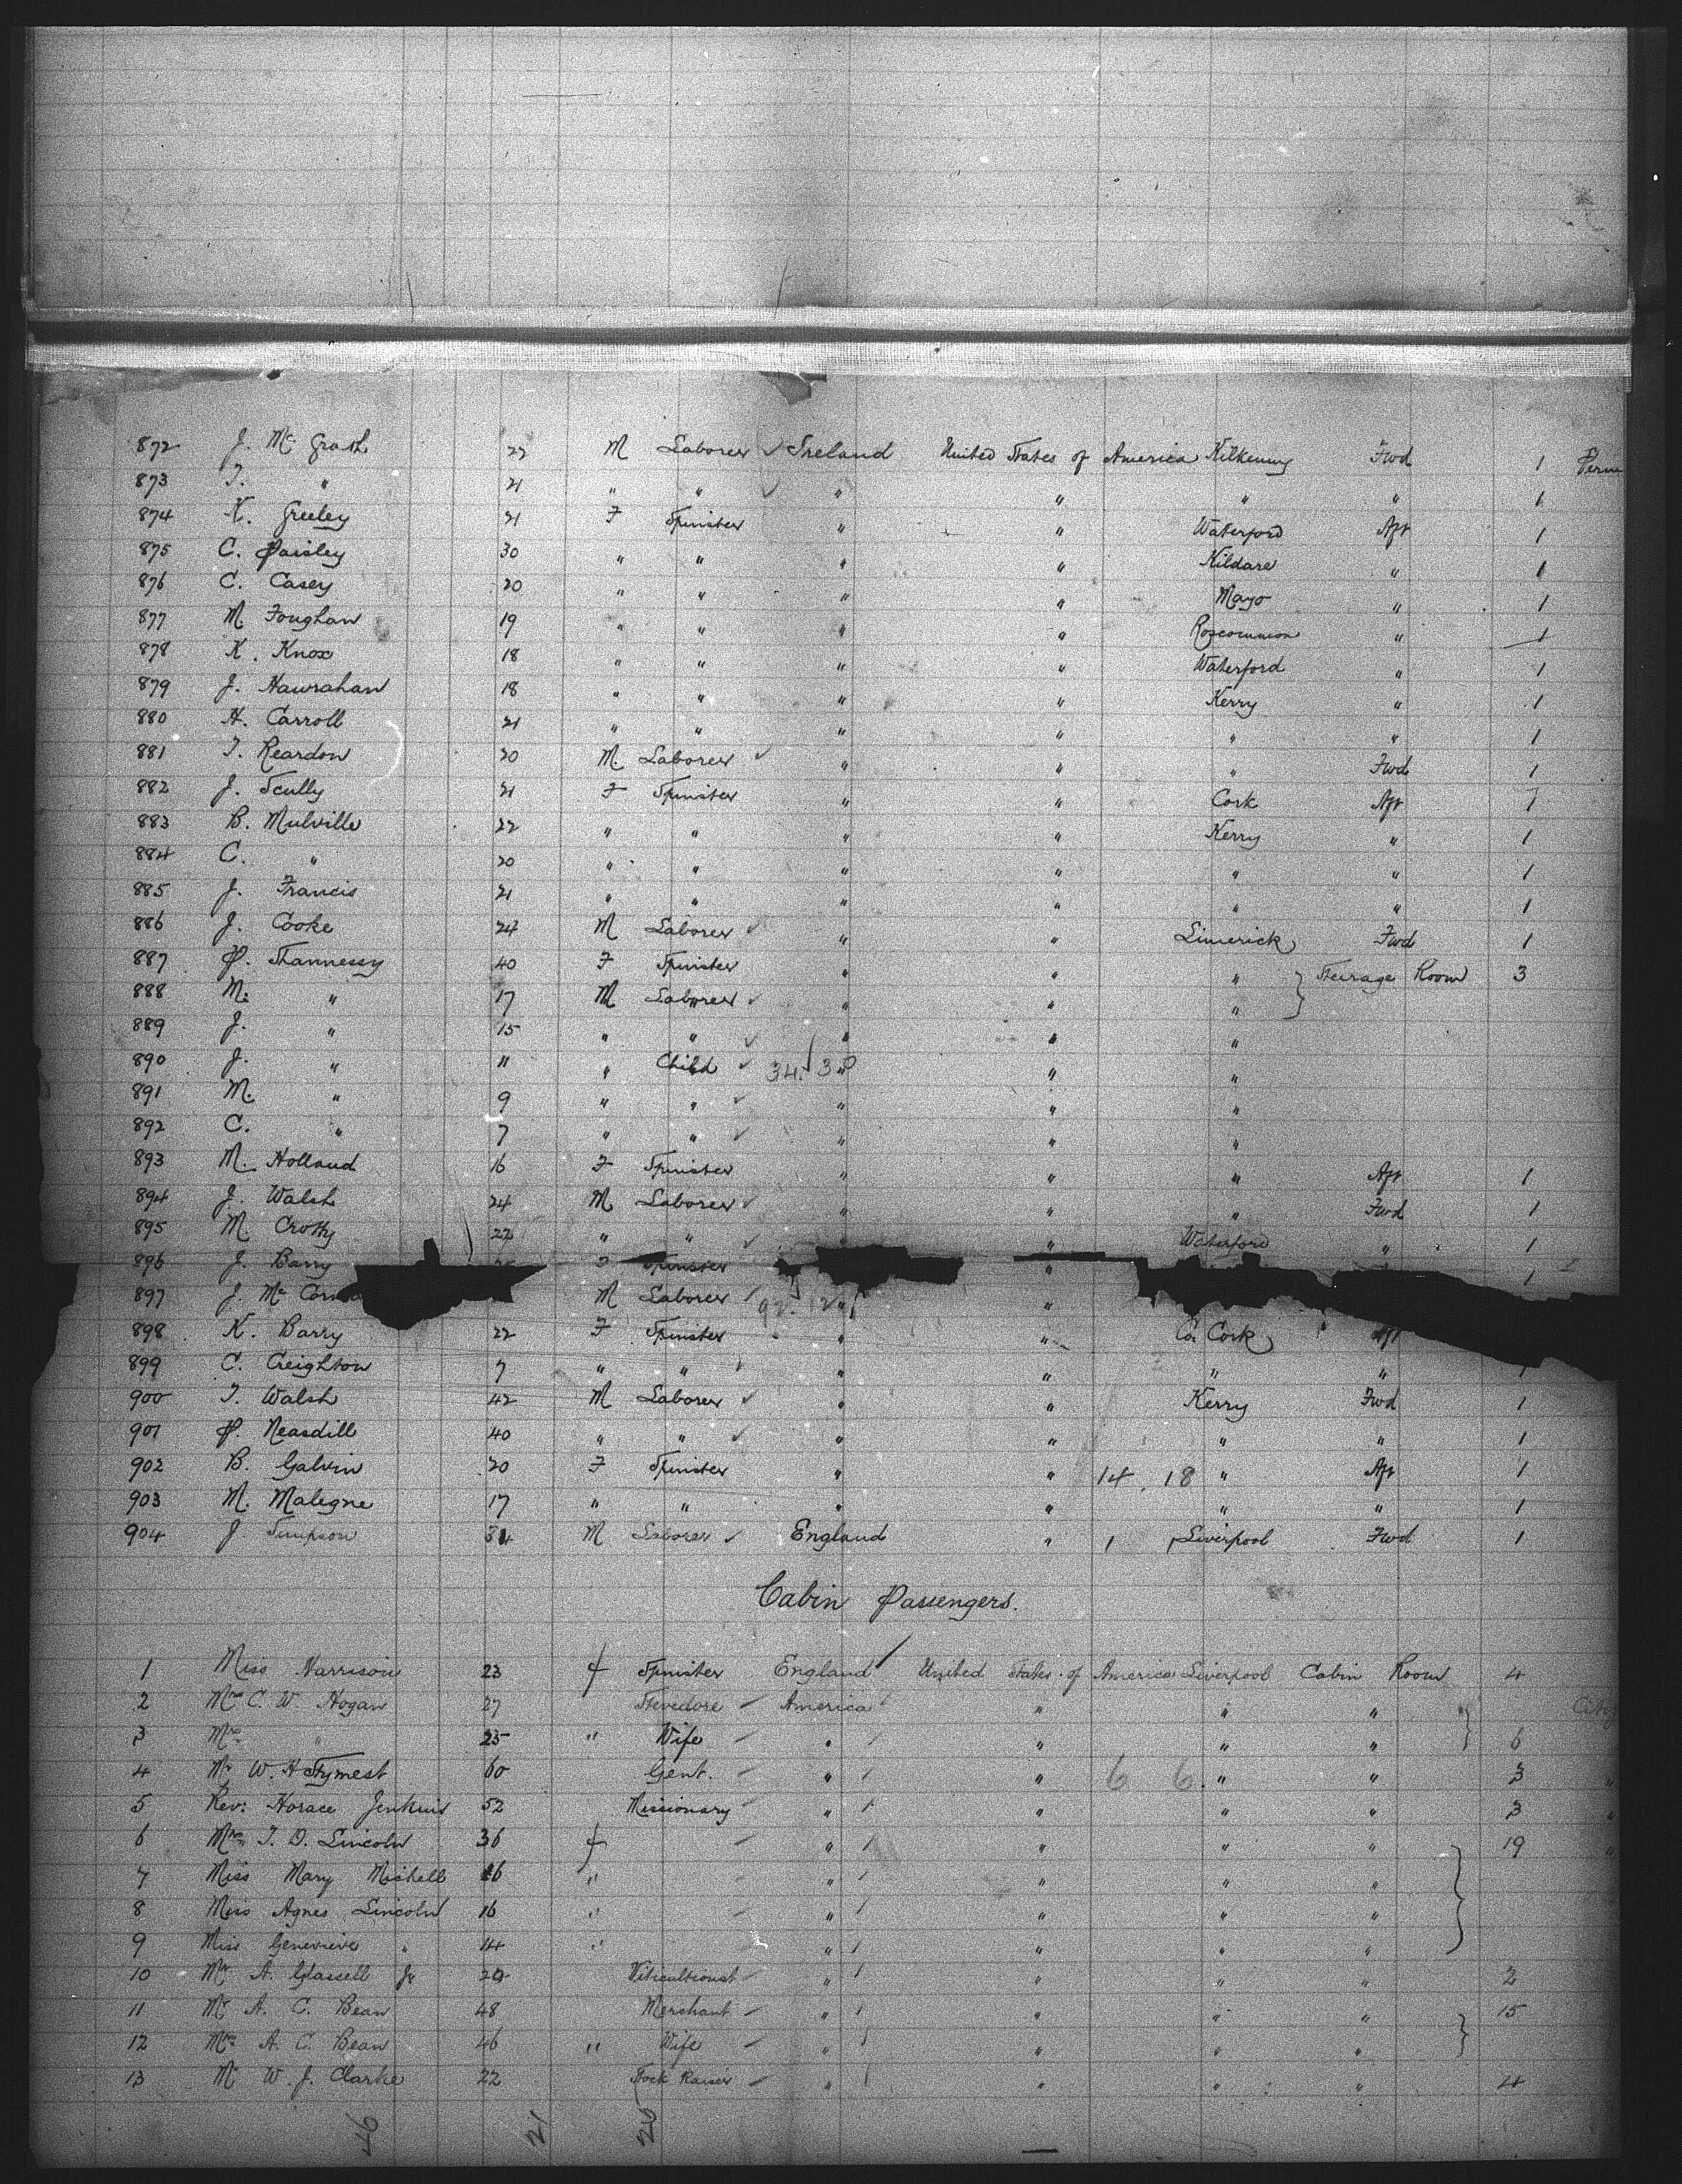 872 J. Mc Grath 22 M Laborer ✓ Ireland United States of America Kilkenny Fwd 1
873 T. " 21 " " ✓ " " " " 1
874 K. Greeley 21 F Spinster " " Waterford Aft 1
875 C. Paisley 30 " " " " Kildare " 1
876 C. Casey 20 " " " " Mayo " 1
877 M Foughan 19 " " " " Roscommon " 1
878 K. Knox 18 " " " " Waterford " 1
879 J. Hawrahan 18 " " " " Kerry " 1
880 H. Carroll 21 " " " " " " 1
881 T. Reardon 20 M. Laborer ✓ " " " Fwd 1
882 J. Scully 21 F Spinster " " Cork Aft 1
883 B. Mulville 22 " " " " Kerry " 1
884 C. " 20 " " " " " " 1
885 J. Francis 21 " " " " " " 1
886 J. Cooke 24 M Laborer ✓ " " Limerick Fwd 1
887 P. Shannessy 40 F Spinster " " " Steerage Room 3
888 M. " 17 M Laborer ✓ " " "
889 J. " 15 " " ✓ " " "
890 J. " 11 " Child ✓ 34. 3 " " "
891 M. " 9 " " ✓ " " "
892 C. " 7 " " ✓ " " "
893 M. Holland 16 F Spinster " " " Aft 1
894 J. Walsh 24 M Laborer ✓ " " " Fwd 1
895 M Crotty 22 " " ✓ " " Waterford " 1
896 J. Barry Spinster " 1
897 J. Mc M Laborer ✓ 92. 12 " "
898 K. Barry 22 F Spinster " " Co. Cork Aft
899 C. Creighton 7 " " " " " " 1
900 T. Walsh 42 M Laborer ✓ " " Kerry Fwd 1
901 P. Neasdill 40 " " ✓ " " " " 1
902 B. Galvin 20 F Spinster " " 14. 18 " Aft 1
903 M. Malegne 17 " " " " " " 1
904 J. Simpson M Laborer ✓ England " 1 1 Liverpool Fwd 1
Cabin Passengers.
1 Miss Harrison 23 f Spinster England United States of America Liverpool Cabin Room 4
2 Mr C. W. Hogan 27 Stevedore America " " "
3 Mrs " 25 " Wife " " " " 6
4 Mr W. H Stymest 60 Gent. " " 6 6. " " 3
5 Rev: Horace Jenkins 52 Missionary " " " " 3
6 Mrs T. D. Lincoln 36 f " " " " 19
7 Miss Mary Mishell 16 " " " " "
8 Miss Agnes Lincoln 16 " " " " "
9 Miss Genevieve " 14 " " " " "
10 Mr A. Glassell Jr Viticulturist " " " " 2
11 Mr A. C. Bean 48 Merchant " " " " 15
12 Mrs A. C. Bean 46 " Wife " " " "
13 Mr W. J. Clarke 22 Stock Raiser " " " " 4
46 21 25